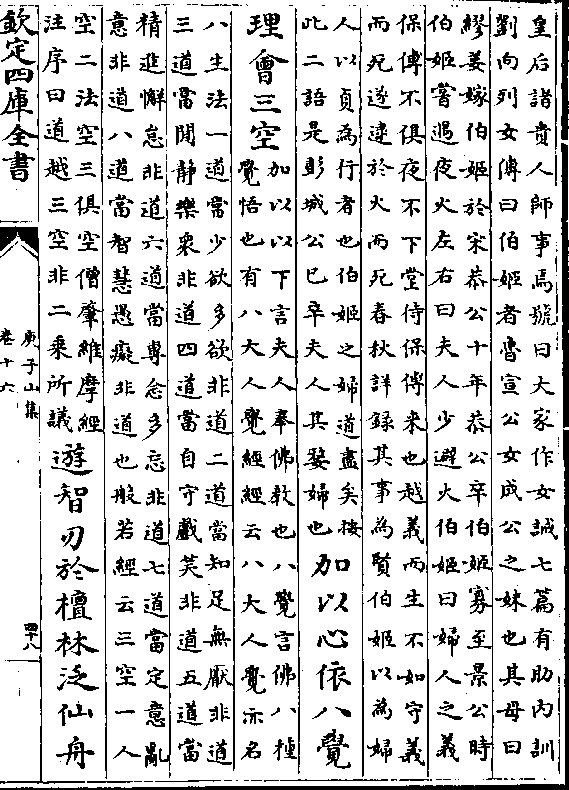 皇后諸貴人師事焉號曰大家作女誡七篇有助内訓
劉向列女傳曰伯姬者魯宣公女成公之妹也其母曰
繆姜嫁伯姬於宋恭公十年恭公卒伯姬寡至景公時
伯姬嘗遇夜火左右曰夫人少避火伯姬曰婦人之義
保傅不俱夜不下堂侍保傅来也越義而生不如守義
而死遂逮於火而死春秋詳録其事為賢伯姬以為婦
人以貞為行者也伯姬之婦道盡矣按
此二語是彭城公已卒夫人其嫠婦也
加以心依八覺
理會三空
加以以下言夫人奉佛教也八覺言佛八種
覺悟也有八大人覺經經云八大人覺亦名
八生法一道當少欲多欲非道二道當知足無厭非道
三道當閒静樂衆非道四道當自守戲笑非道五道當
精進懈怠非道六道當專念多忘非道七道當定意亂
意非道八道當智慧愚癡非道也般若經云三空一人
空二法空三俱空僧肇維摩經
注序曰道越三空非二乘所議
遊智刃於檀林泛仙舟
欽定四庫全書
庾子山集
卷十六
四十八